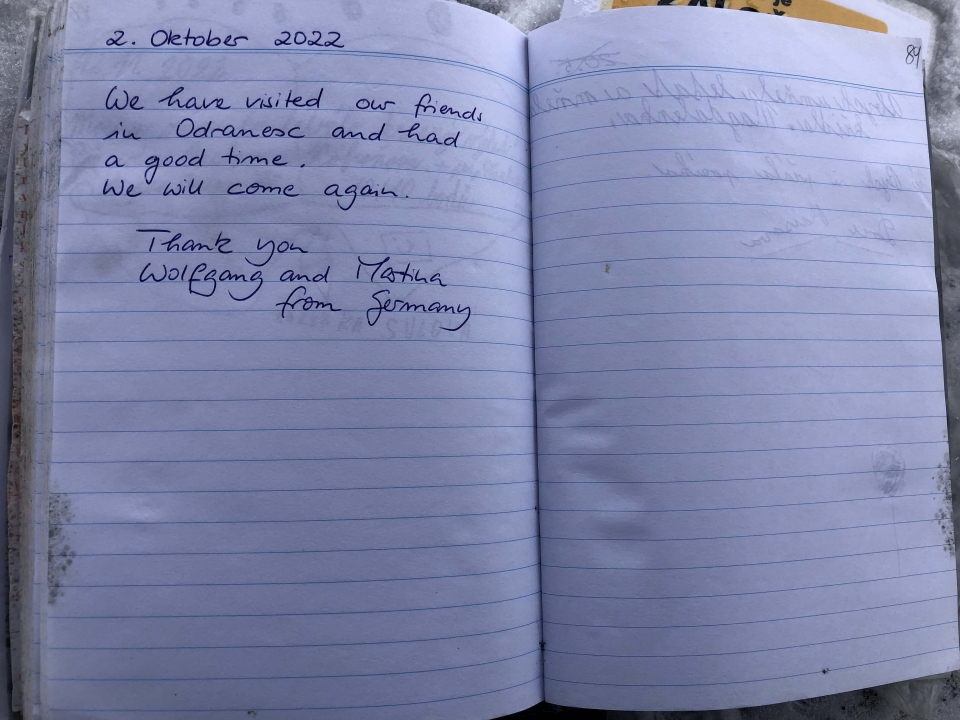 2. Oktober 2022
We have visited our friends
in Odranesc and had
a good time.
We will come again.
Thank you
Wolfgang and Martina
from Germany
89